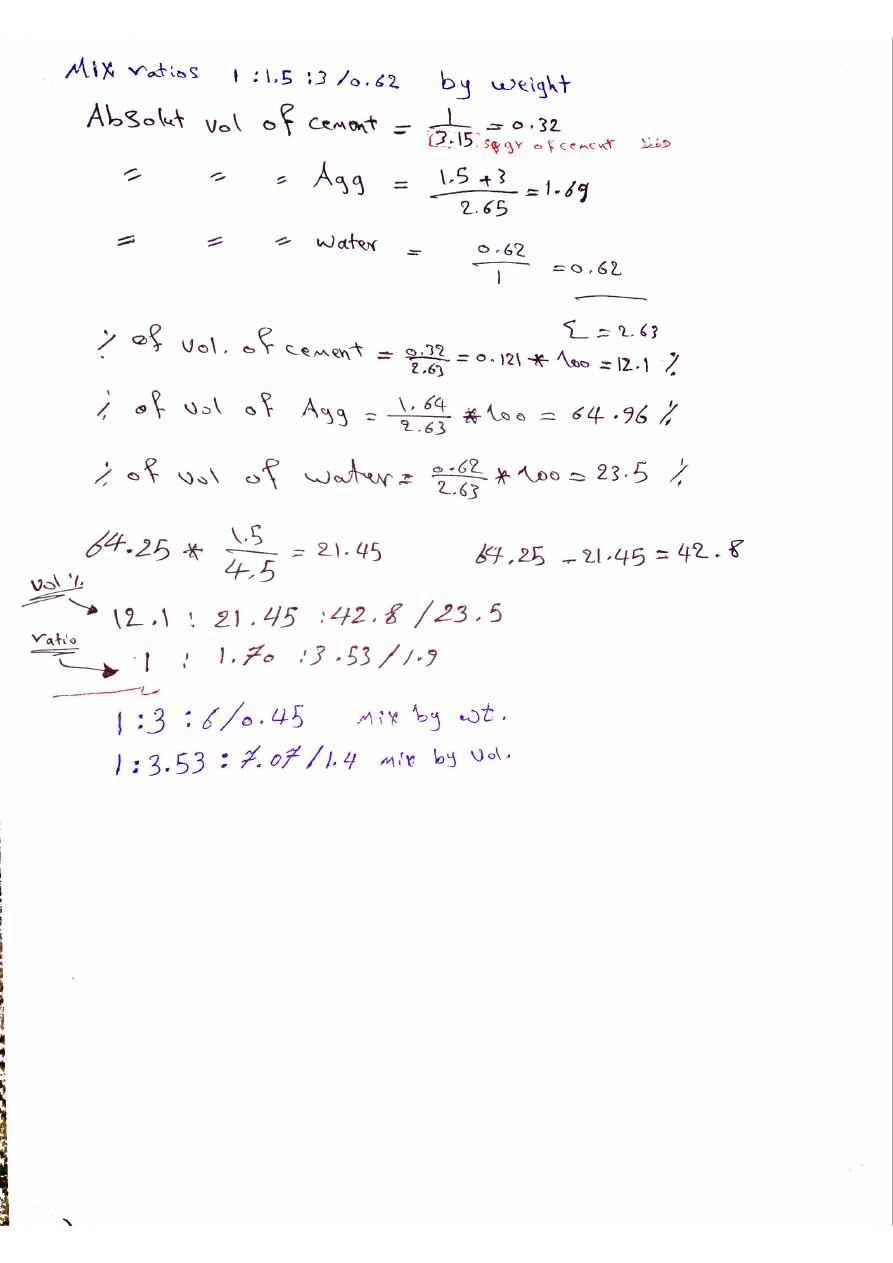 Mix ratios 1 : 1.5 : 3 / 0.62 by weight
Absolut vol of cement = 1/3.15 = 0.32
sp gr of cement
= = = Agg = 1.5 + 3 / 2.65 = 1.69
= = = water = 0.62/1 = 0.62
Σ = 2.63
% of vol. of cement = 0.32/2.63 = 0.121 * 100 = 12.1 %
% of vol of Agg = 1.64/2.63 * 100 = 64.96 %
% of vol of water = 0.62/2.63 * 100 = 23.5 %
64.25 * 1.5/4.5 = 21.45 64.25 - 21.45 = 42.8
vol %
12.1 : 21.45 : 42.8 / 23.5
ratio
1 : 1.70 : 3.53 / 1.9
1 : 3 : 6 / 0.45 mix by wt.
1 : 3.53 : 7.07 / 1.4 mix by vol.